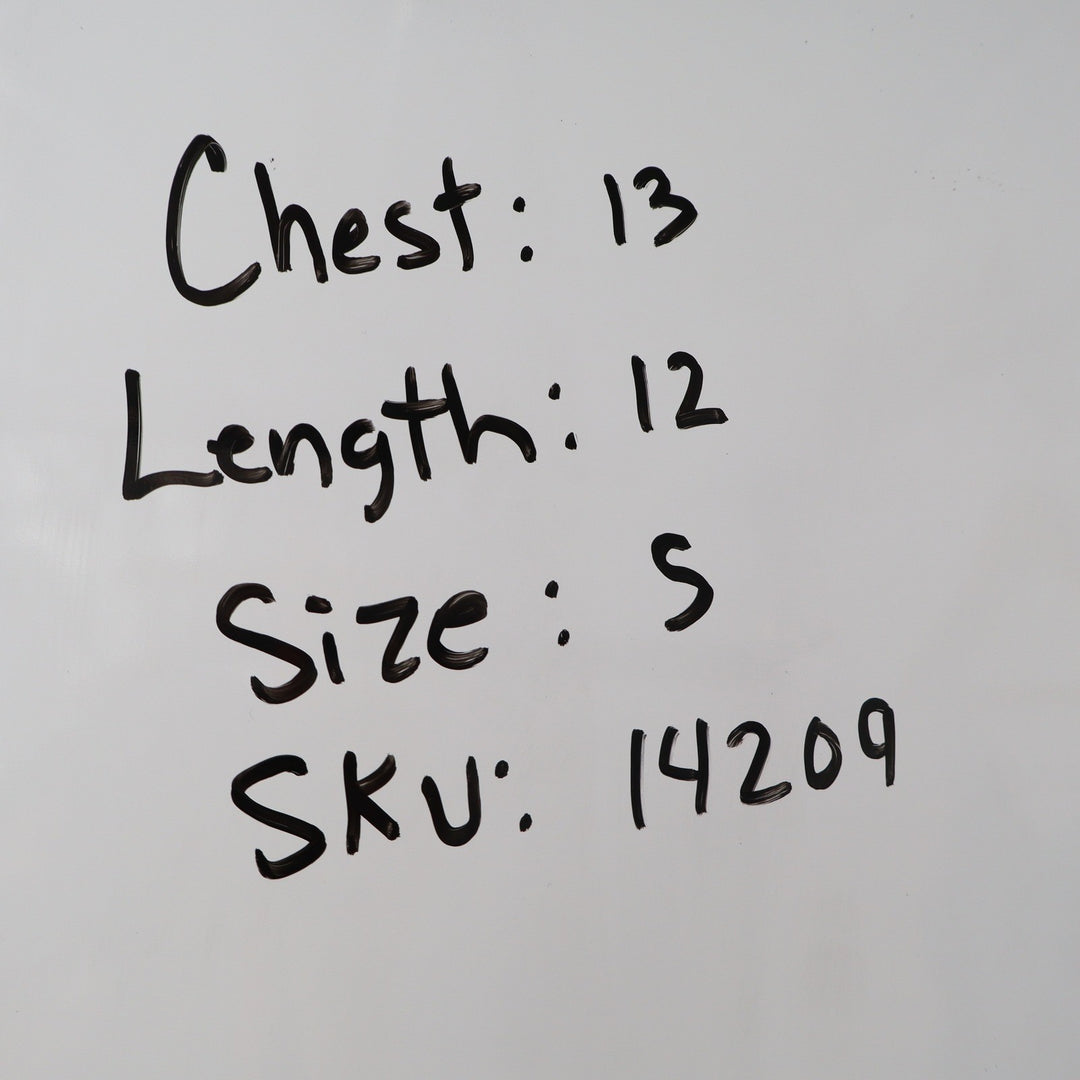 Chest: 13
Length: 12
Size: S
SKU: 14209